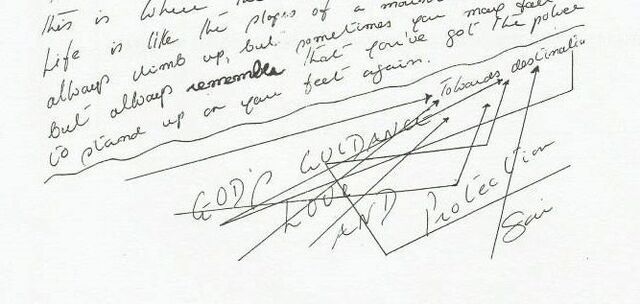 this is where the
Life is like the slopes of a mou
always climb up, but sometimes you may fall
but always remember that you've got the police
to stand up on your feet again.
Towards destination
GOD'S GUIDANCE
LOVE
AND Protection
Sai